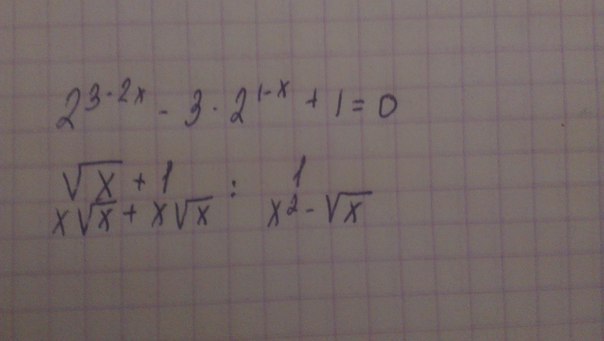 2^{3-2x} - 3 · 2^{1-x} + 1 = 0
√x + 1 : 1
x√x + x√x x² - √x